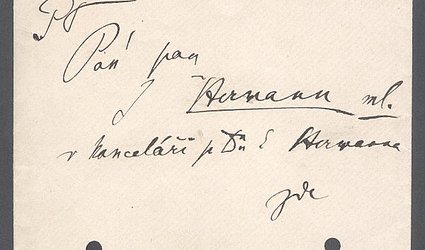 Pán pan
J Hermann ml.
v kanceláři p Dra E Hermanna
zde